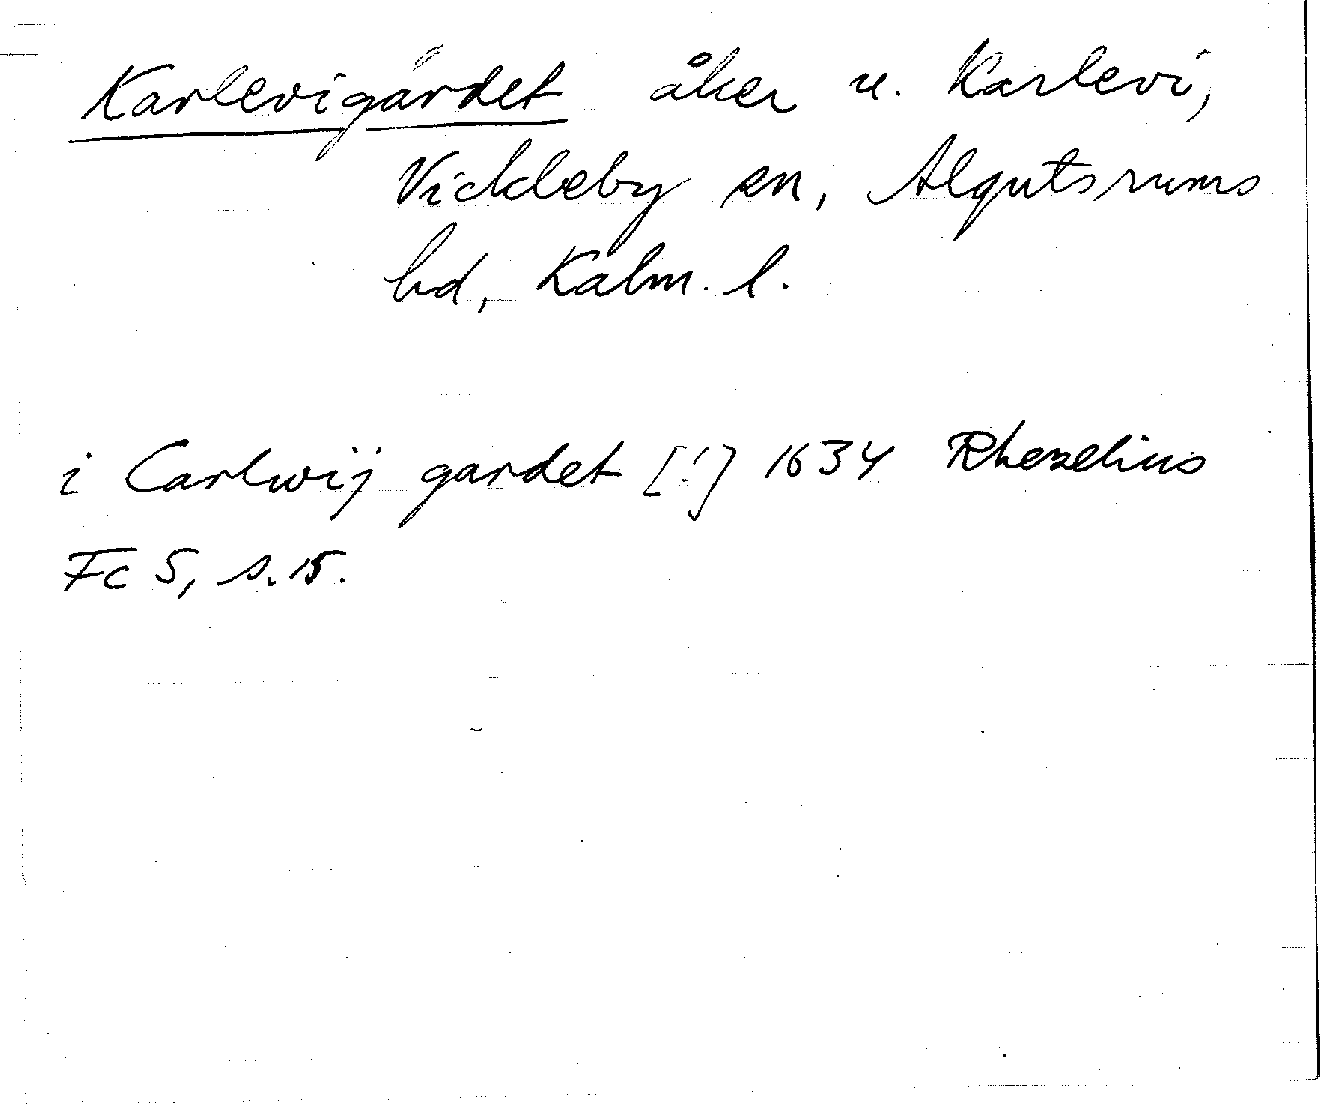 Karlevigärdet åker u. Karlevi,
Vickleby sn, Algutsrums
hd, Kalm. l.
i Carlwij gardet [!] 1634 Rhezelius
Fc 5, s. 15.